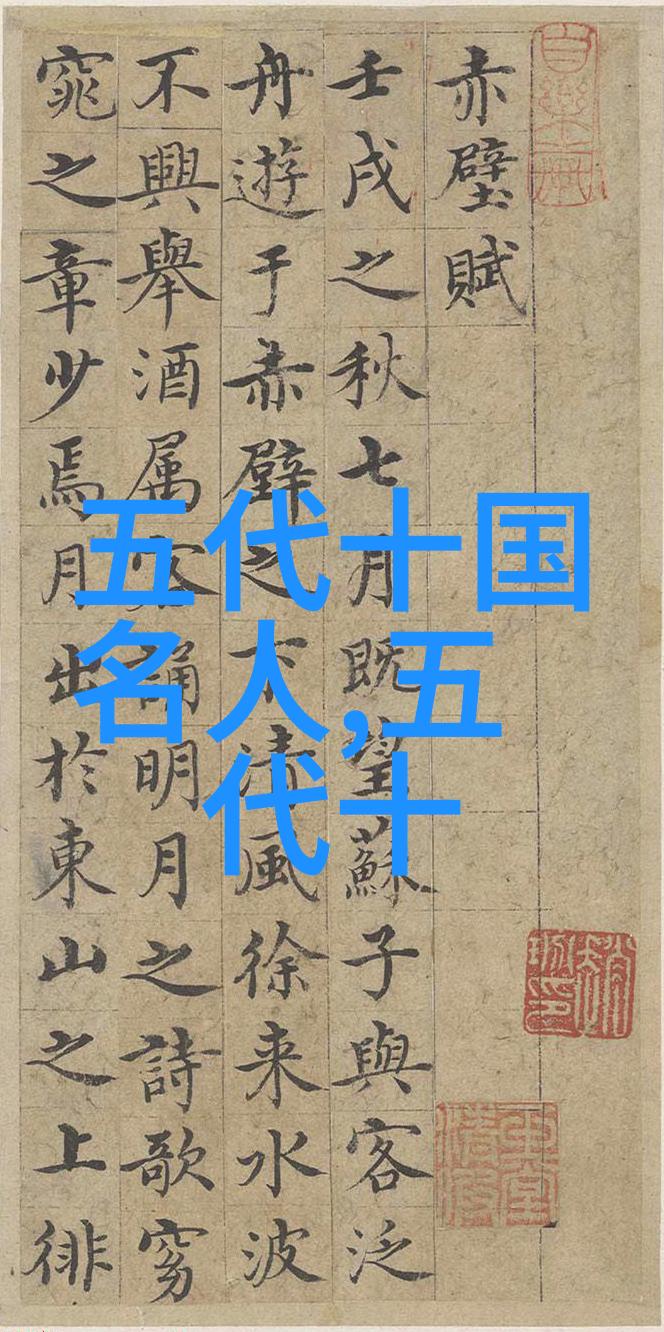 赤壁賦
壬戌之秋七月既望蘇子與客泛
舟遊于赤壁之下清風徐来水波
不興舉酒属客誦明月之詩歌窈
窕之章少焉月出於東山之上徘
五代十国
名人,五
代十